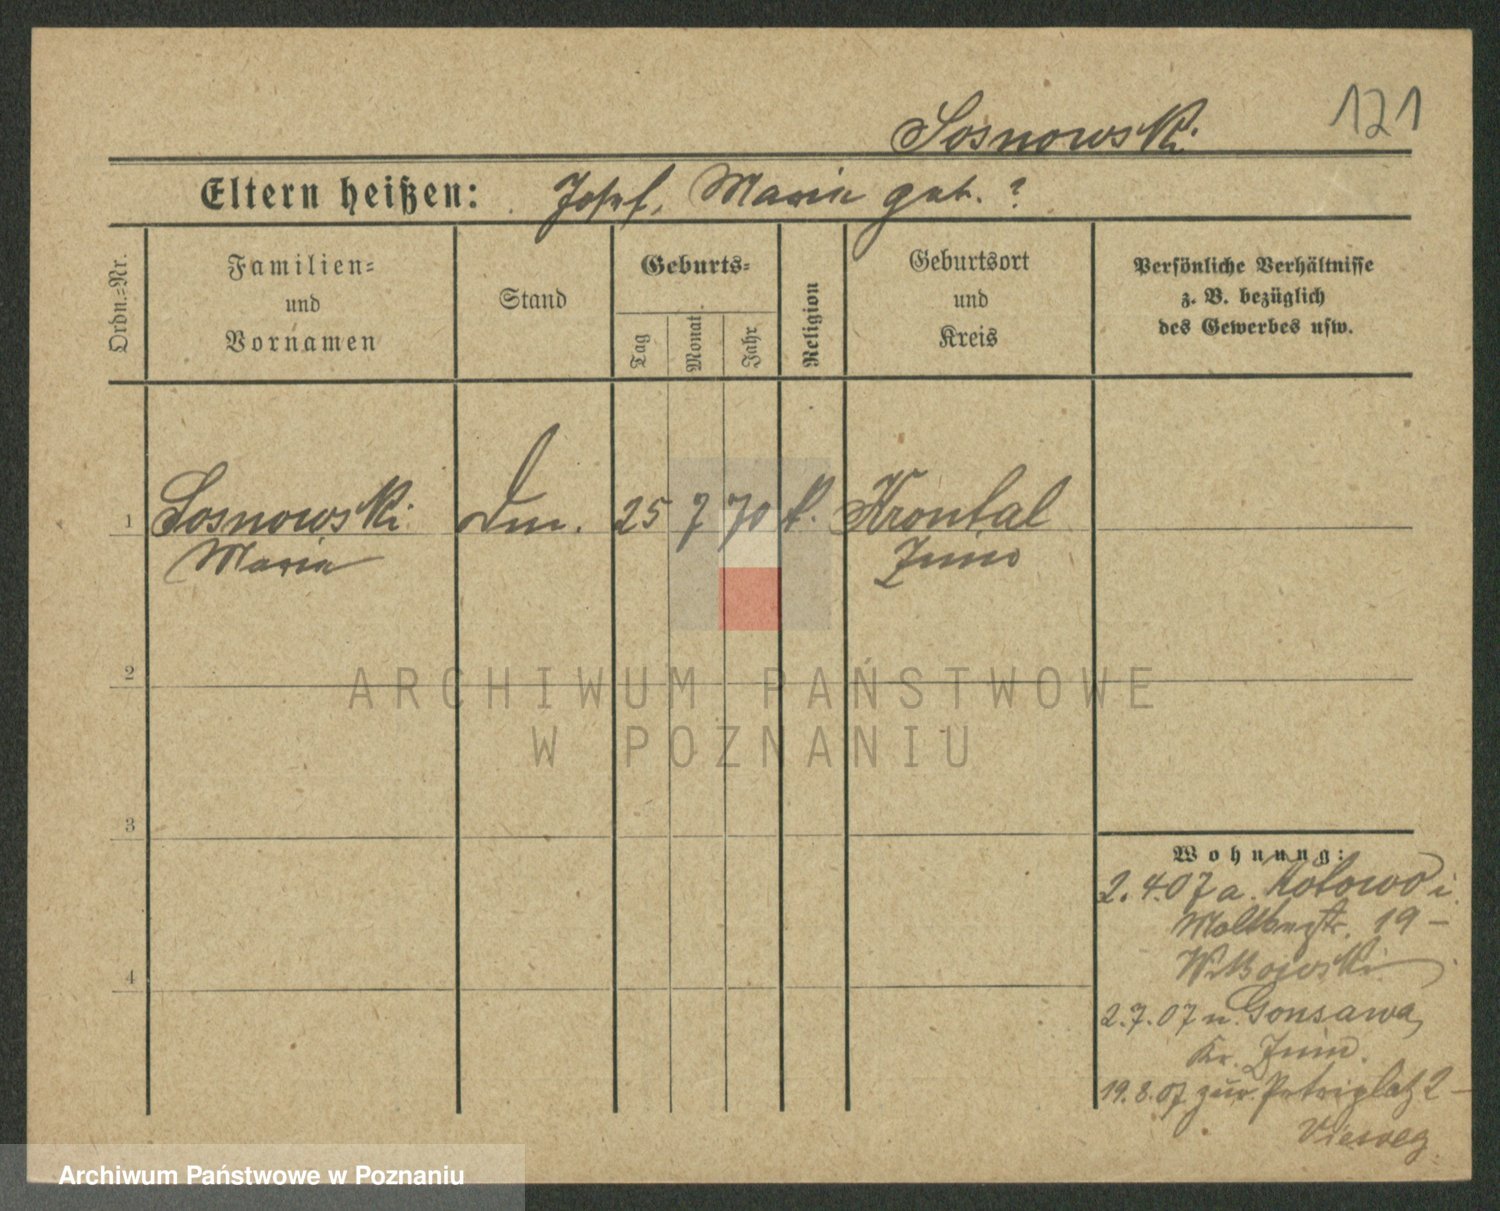 Sosnowski 121
Eltern heißen: Josef, Maria geb. ?
Ordn.=Nr.
Familien=
und
Vornamen
Stand
Geburts=
Tag
Monat
Jahr
Religion
Geburtsort
und
Kreis
Persönliche Verhältnisse
z. B. bezüglich
des Gewerbes usw.
1 Sosnowski 25 7 70 k. Krontal
Maria Znin
2
ARCHIWUM PAŃSTWOWE
W POZNANIU
3
4
Wohnung:
2.4.07 a. Kotowo i.
Moltkestr. 19 –
Witkowski
2.7.07 n. Gonsawa,
Kr. Znin.
19.8.07 zur. Petriplatz 2 –
Vieweg
Archiwum Państwowe w Poznaniu